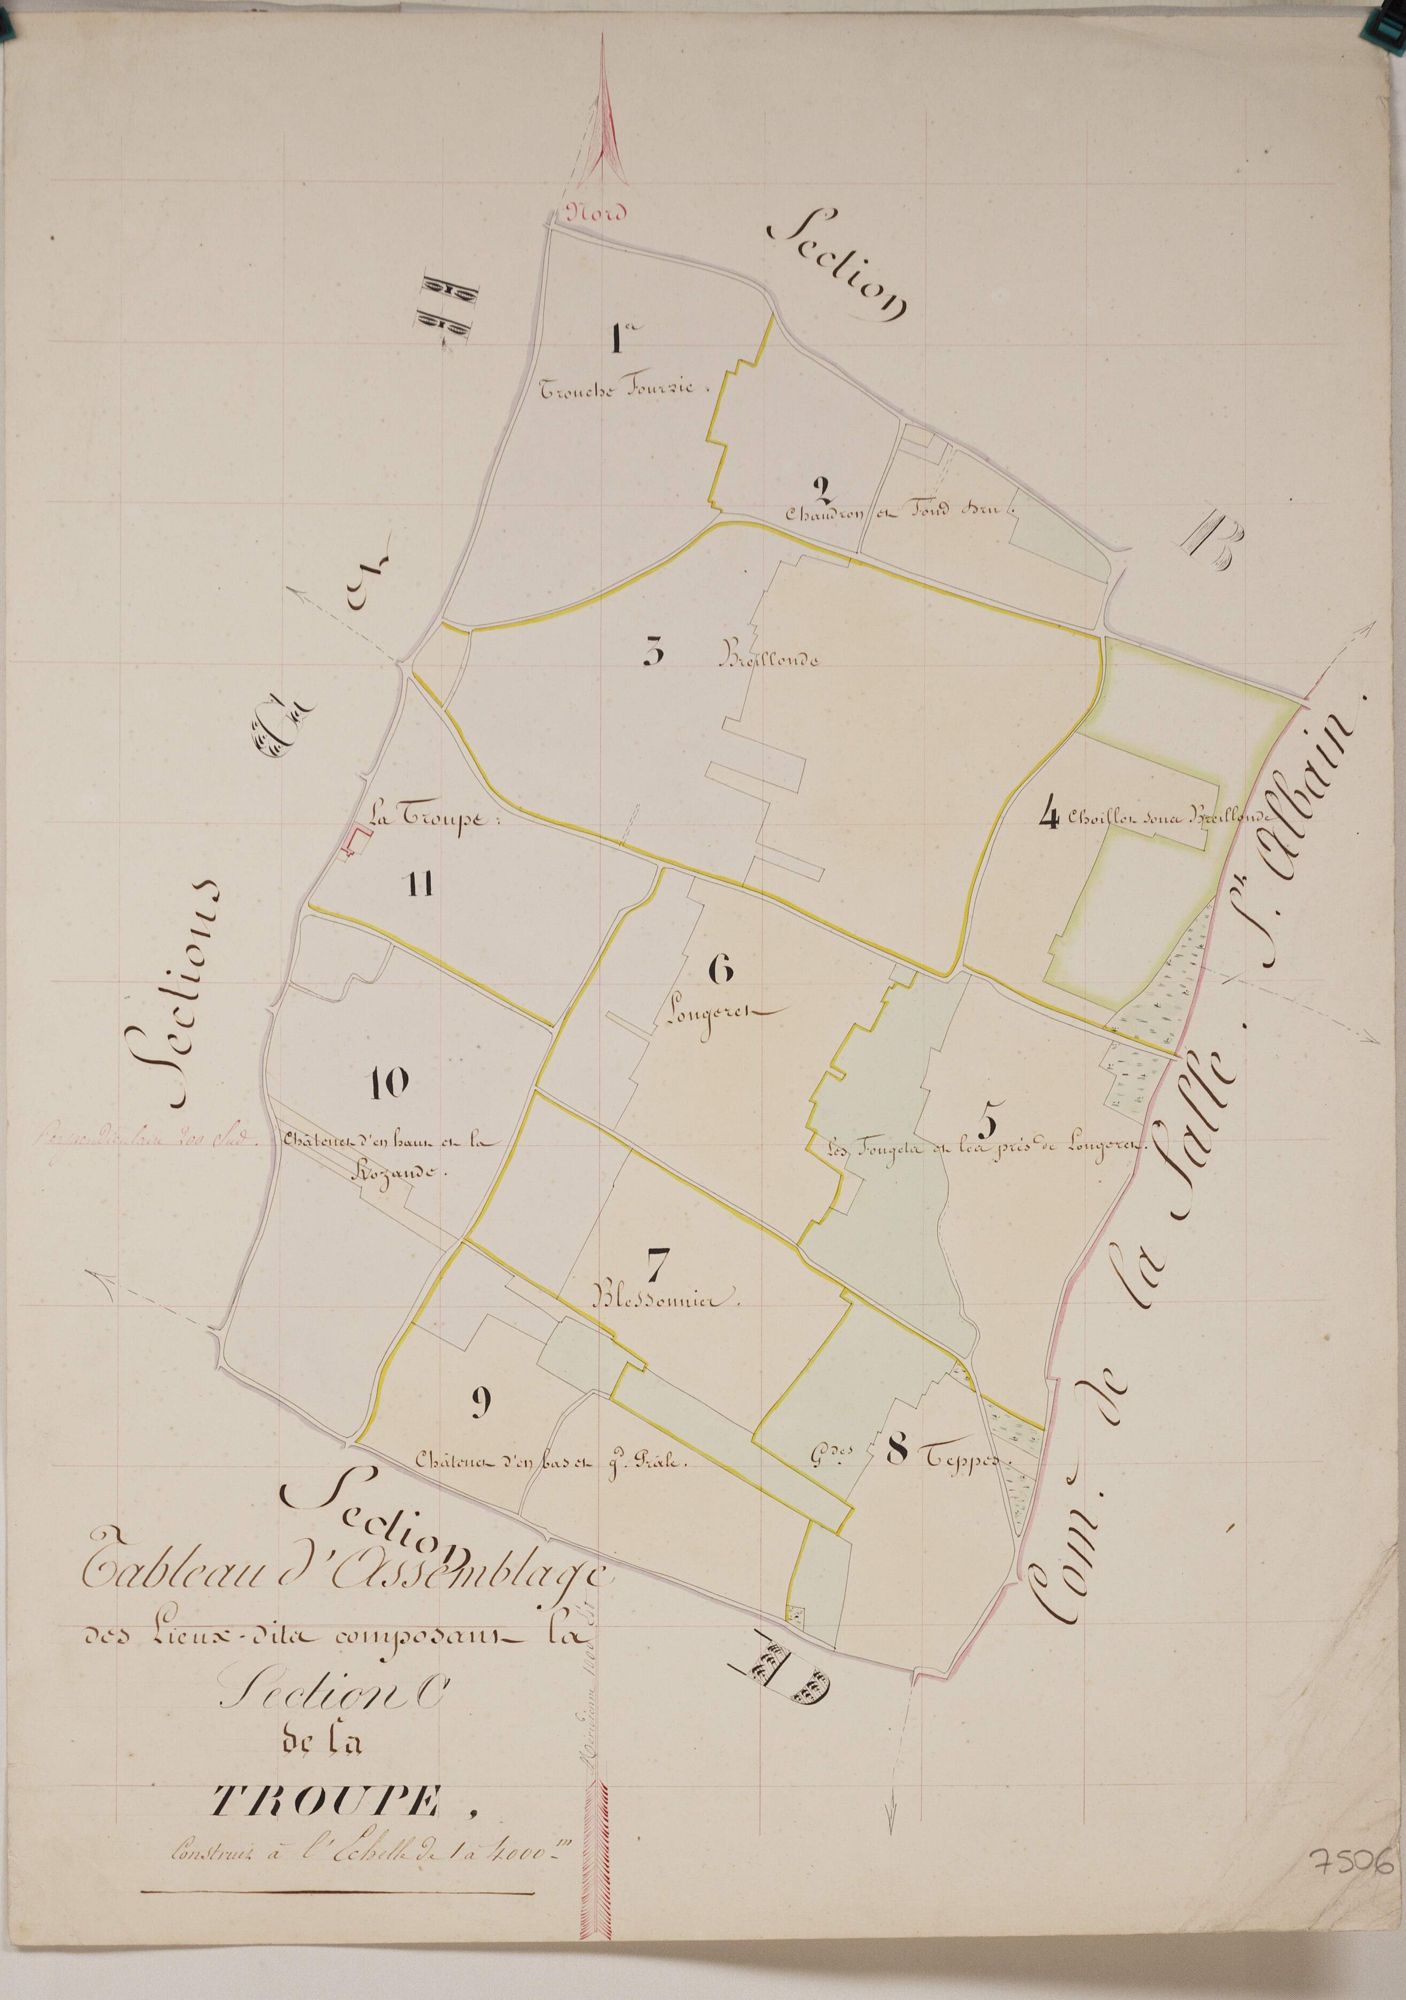 Nord
Section
B
H
et
G
Sections
1re
Trouche Fourzie.
2
Chaudron et Fond Bru.
3
Breillonde
4 Choillot sous Breillonde
La Troupe:
11
6
Longeret
10
Châtenet d'en haut et la
Rozande.
Perpendiculaire 200 Sud.
5
Les Fougets et les prés de Longeret.
7
Blessonnier.
9
Châtenet d'en bas et gd. Prâle.
Gdes. 8 Teppes.
Section
D
Com.e de la Salle. St. Albain.
Tableau d'Assemblage
des Lieux-dits composant la
Section C
de la
TROUPE,
Construit à l'Echelle de 1 à 4000m
7506